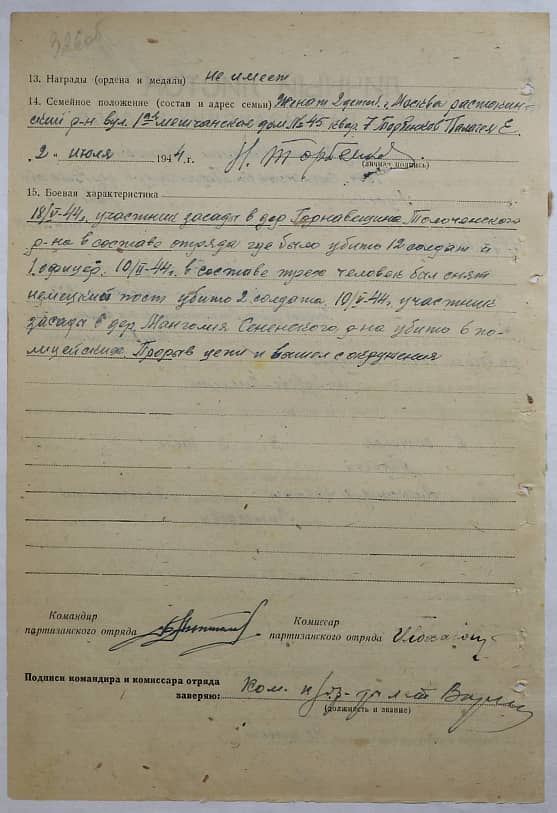 13. Награды (ордена и медали) Не имеет
14. Семейное положение (состав и адрес семьи) Женат 2 детей г. Москва растокин-
ский р-н вул. 1ая мещанская дом № 45 квар. 7 Пелагея Е.
2 " июля 1944 г. Н.
(личная подпись)
15. Боевая характеристика
18/V-44г. участник засады в дер Толочанского
р-на в составе отряда где было убито 12 солдат и
1 офицер. 10/II-44г. в составе трех человек был снят
немецкий пост убито 2 солдата. 10/V-44г. участник
засады в дер. Сененского р-на убито 6 по-
лицейских. Прорыв цепи и вышел с окружения
Командир
партизанского отряда
Комиссар
партизанского отряда
Подписи командира и комиссара отряда
заверяю:
(должность и звание)